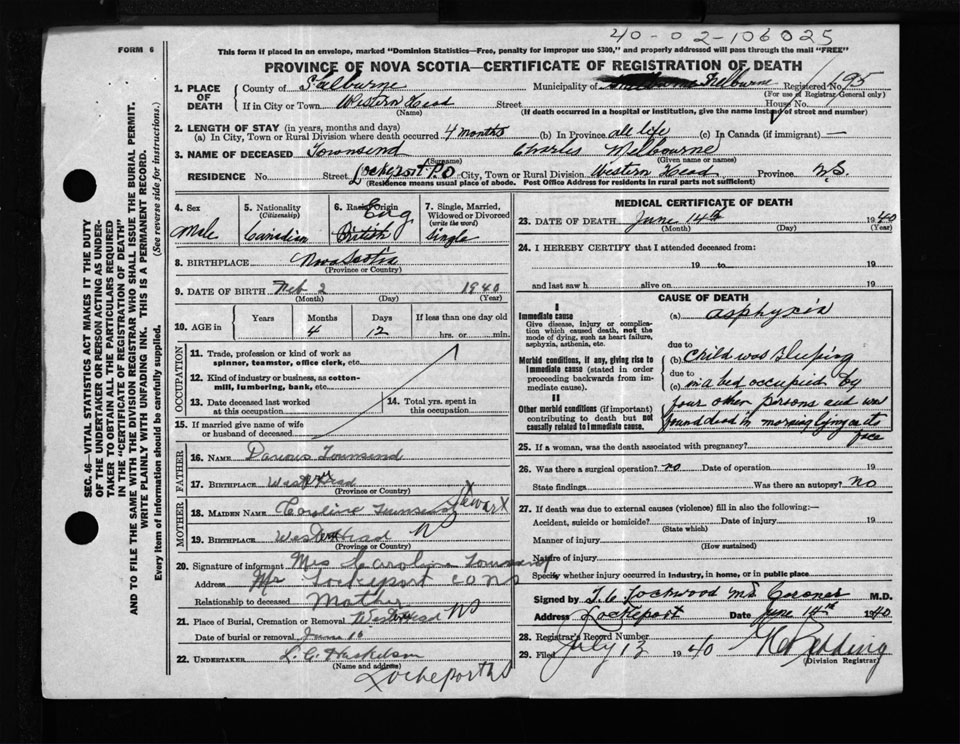 40-02-106025
FORM 6
This form if placed in an envelope, marked "Dominion Statistics—Free, penalty for improper use $300," and properly addressed will pass through the mail "FREE"
PROVINCE OF NOVA SCOTIA—CERTIFICATE OF REGISTRATION OF DEATH
SEC. 46—VITAL STATISTICS ACT MAKES IT THE DUTY
OF THE UNDERTAKER OR PERSON ACTING AS UNDER-
TAKER TO OBTAIN ALL THE PARTICULARS REQUIRED
IN THE "CERTIFICATE OF REGISTRATION OF DEATH"
AND TO FILE THE SAME WITH THE DIVISION REGISTRAR WHO SHALL ISSUE THE BURIAL PERMIT.
WRITE PLAINLY WITH UNFADING INK. THIS IS A PERMANENT RECORD.
Every item of information should be carefully supplied. (See reverse side for instructions.)
1. PLACE OF DEATH County of Shelburne Municipality of Shelburne Registered No. 95
(For use of Registrar General only)
If in City or Town Western Head Street House No.
(Name) (If death occurred in a hospital or institution, give the name instead of street and number)
2. LENGTH OF STAY (in years, months and days)
(a) In City, Town or Rural Division where death occurred 4 months (b) In Province all life (c) In Canada (if immigrant) —
3. NAME OF DECEASED Townsend Charles Melbourne
(Surname) (Given name or names)
RESIDENCE No. Street Lockeport P.O City, Town or Rural Division Western Head Province N.S.
(Residence means usual place of abode. Post Office Address for residents in rural parts not sufficient)
4. Sex Male
5. Nationality (Citizenship) Canadian
6. Racial Origin Eng British
7. Single, Married, Widowed or Divorced (write the word) Single
8. BIRTHPLACE Nova Scotia
(Province or Country)
9. DATE OF BIRTH Feb 2 1940
(Month) (Day) (Year)
10. AGE in Years Months Days If less than one day old
4 12 hrs. or min.
OCCUPATION
11. Trade, profession or kind of work as spinner, teamster, office clerk, etc.
12. Kind of industry or business, as cotton-mill, lumbering, bank, etc.
13. Date deceased last worked at this occupation
14. Total yrs. spent in this occupation
15. If married give name of wife or husband of deceased
FATHER
16. NAME Darious Townsend
17. BIRTHPLACE West Head
(Province or Country)
MOTHER
18. MAIDEN NAME Caroline Townsend Stewart
19. BIRTHPLACE Western Head N
(Province or Country)
20. Signature of informant Mrs Caroline Townsend
Address Lockeport
Relationship to deceased Mother
21. Place of Burial, Cremation or Removal West Head NS
Date of burial or removal June 16
22. UNDERTAKER L. G.
(Name and address)
Lockeport
MEDICAL CERTIFICATE OF DEATH
23. DATE OF DEATH June 14th 1940
(Month) (Day) (Year)
24. I HEREBY CERTIFY that I attended deceased from:
19 to 19
and last saw h alive on 19
CAUSE OF DEATH
I
Immediate cause
Give disease, injury or complication which caused death, not the mode of dying, such as heart failure, asphyxia, asthenia, etc.
(a) asphyxia
due to
Morbid conditions, if any, giving rise to immediate cause (stated in order proceeding backwards from immediate cause).
(b) Child was sleeping
due to
(c) in a bed occupied by
II
Other morbid conditions (if important) contributing to death but not causally related to immediate cause.
four other persons and was
found dead in morning lying on its
face
25. If a woman, was the death associated with pregnancy?
26. Was there a surgical operation? no Date of operation 19
State findings Was there an autopsy? No
27. If death was due to external causes (violence) fill in also the following:—
Accident, suicide or homicide? Date of injury 19
(State which)
Manner of injury
(How sustained)
Nature of injury
Specify whether injury occurred in industry, in home, or in public place
Signed by Lockwood MD Coroner M.D.
Address Lockeport Date June 14th 1940
28. Registrar's Record Number
29. Filed July 13 1940
(Division Registrar)